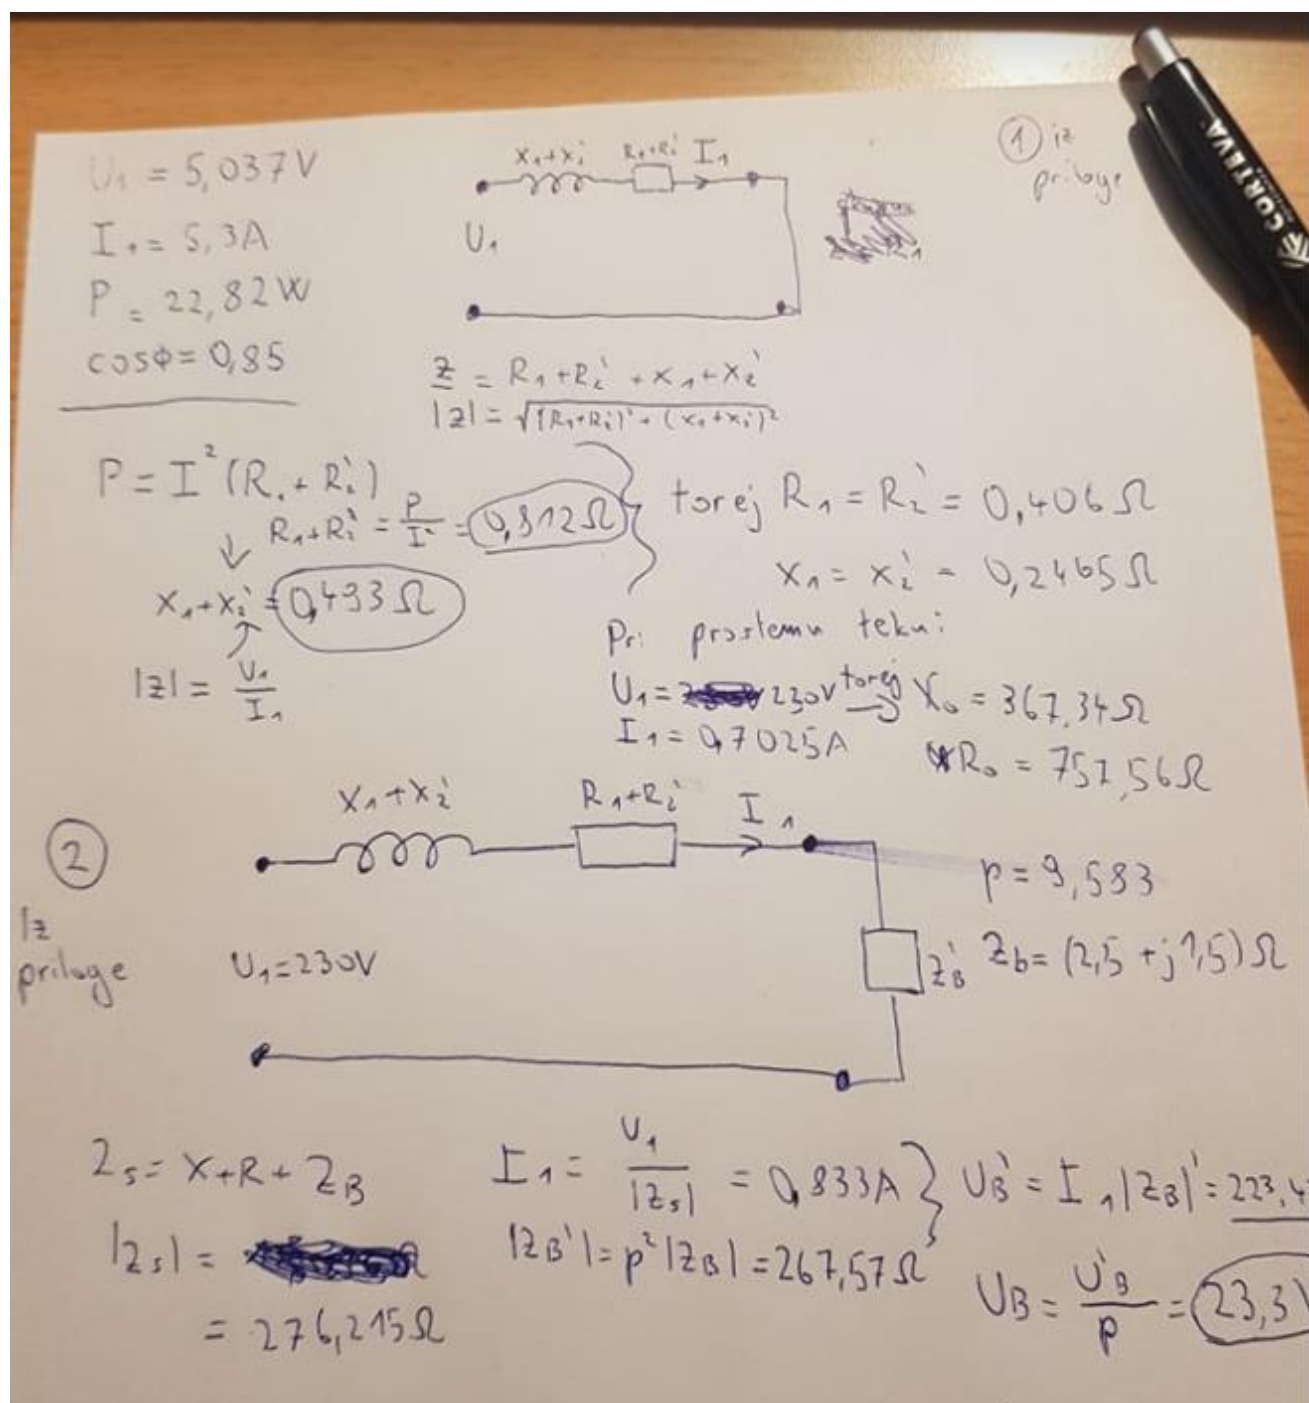 U₁ = 5,037V
I₁ = 5,3A
P = 22,82W
cosφ = 0,85
X₁+X₂' R₁+R₂' I₁
U₁
① iz
priloge
CORTEVA
Z = R₁+R₂' + X₁+X₂'
|Z| = √(R₁+R₂')² + (X₁+X₂')²
P = I²(R₁+R₂')
R₁+R₂' = P/I² = 0,812Ω
X₁+X₂' = 0,493Ω
|Z| = U₁/I₁
torej R₁ = R₂' = 0,406Ω
X₁ = X₂' = 0,2465Ω
Pri prostemu teku:
U₁ = 230V torej → X₀ = 367,34Ω
I₁ = 0,7025A
R₀ = 757,56Ω
②
Iz
priloge
X₁+X₂' R₁+R₂' I₁
U₁=230V
Z_B'
p = 9,583
Z_b = (2,5 + j1,5)Ω
Z_s = X+R+Z_B
|Z_s| =
= 276,215Ω
I₁ = U₁/|Z_s| = 0,833A
|Z_B'| = p²|Z_B| = 267,57Ω
U_B' = I₁|Z_B|' = 223,4
U_B = U'_B/p = 23,3V